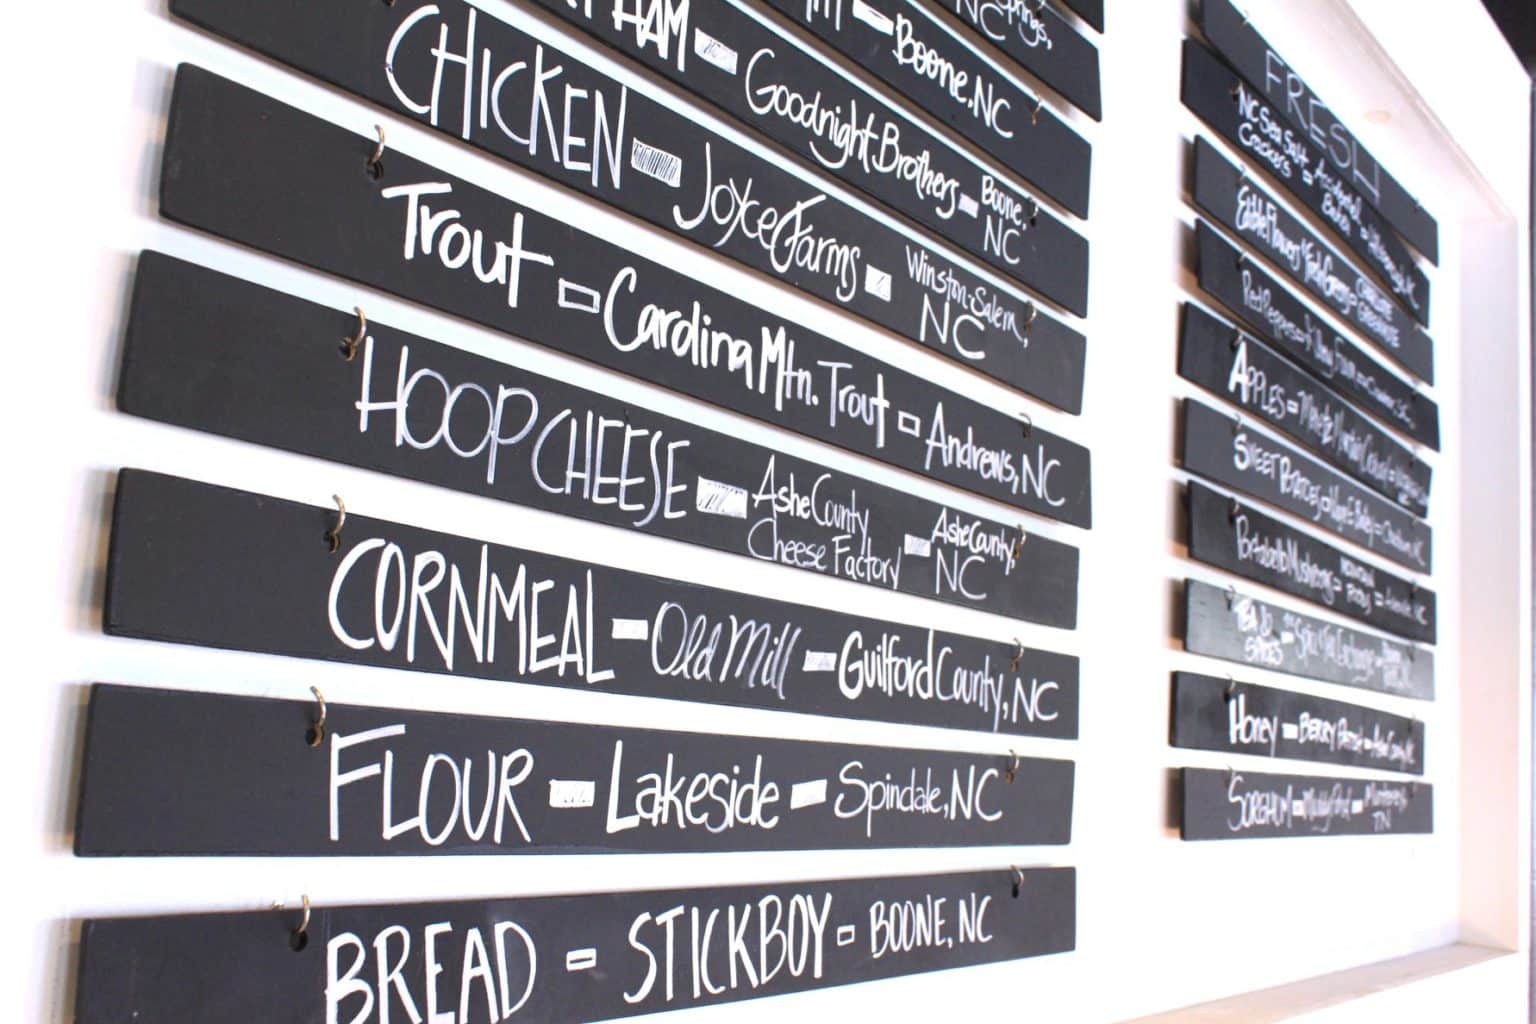 Springs,
NC
Boone, NC
HAM – Goodnight Brothers – Boone, NC
CHICKEN – Joyce Farms – Winston-Salem, NC
Trout – Carolina Mtn. Trout – Andrews, NC
HOOP CHEESE – Ashe County Cheese Factory – Ashe County, NC
CORNMEAL – Old Mill – Guilford County, NC
FLOUR – Lakeside – Spindale, NC
BREAD – STICKBOY – BOONE, NC
FRESH
NC Sea Salt Crackers = Accidental Baker =
Edible Flowers
Red Peppers
APPLES –
SWEET POTATOES
Portabello Mushrooms =
Honey – BERRY – Ashe County, NC
SORGHUM – Muddy Pond – Monterey, TN